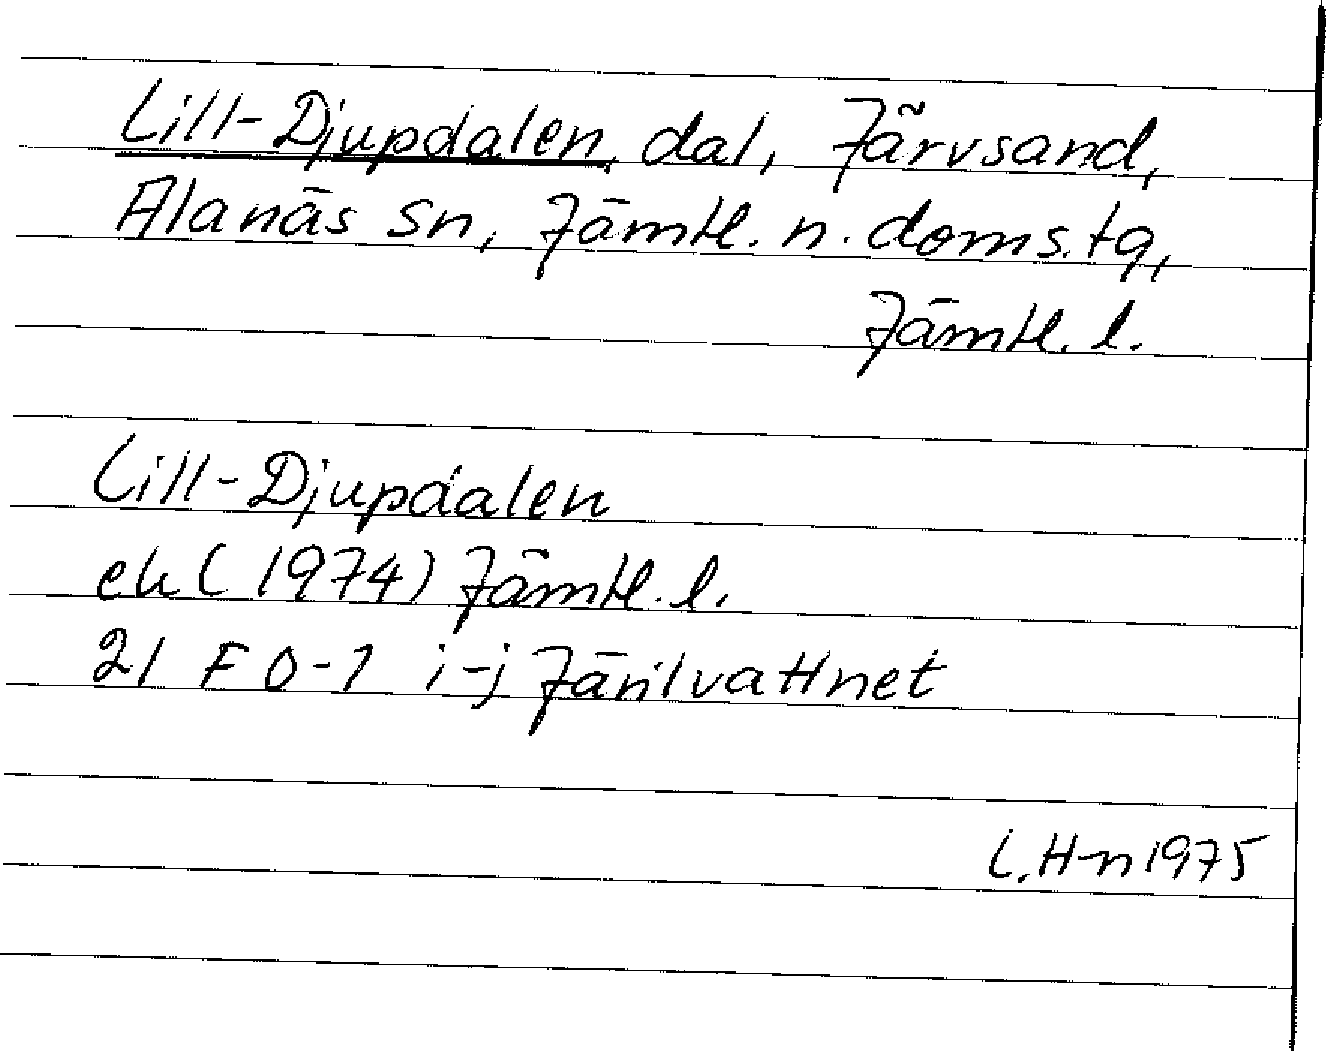 Lill-Djupdalen, dal, Järvsand,
Alanäs sn, Jämtl. n. doms.tg,
Jämtl. l.
Lill-Djupdalen
ek (1974) Jämtl. l.
21 F 0-1 i-j Järilvattnet
L.H-n 1975